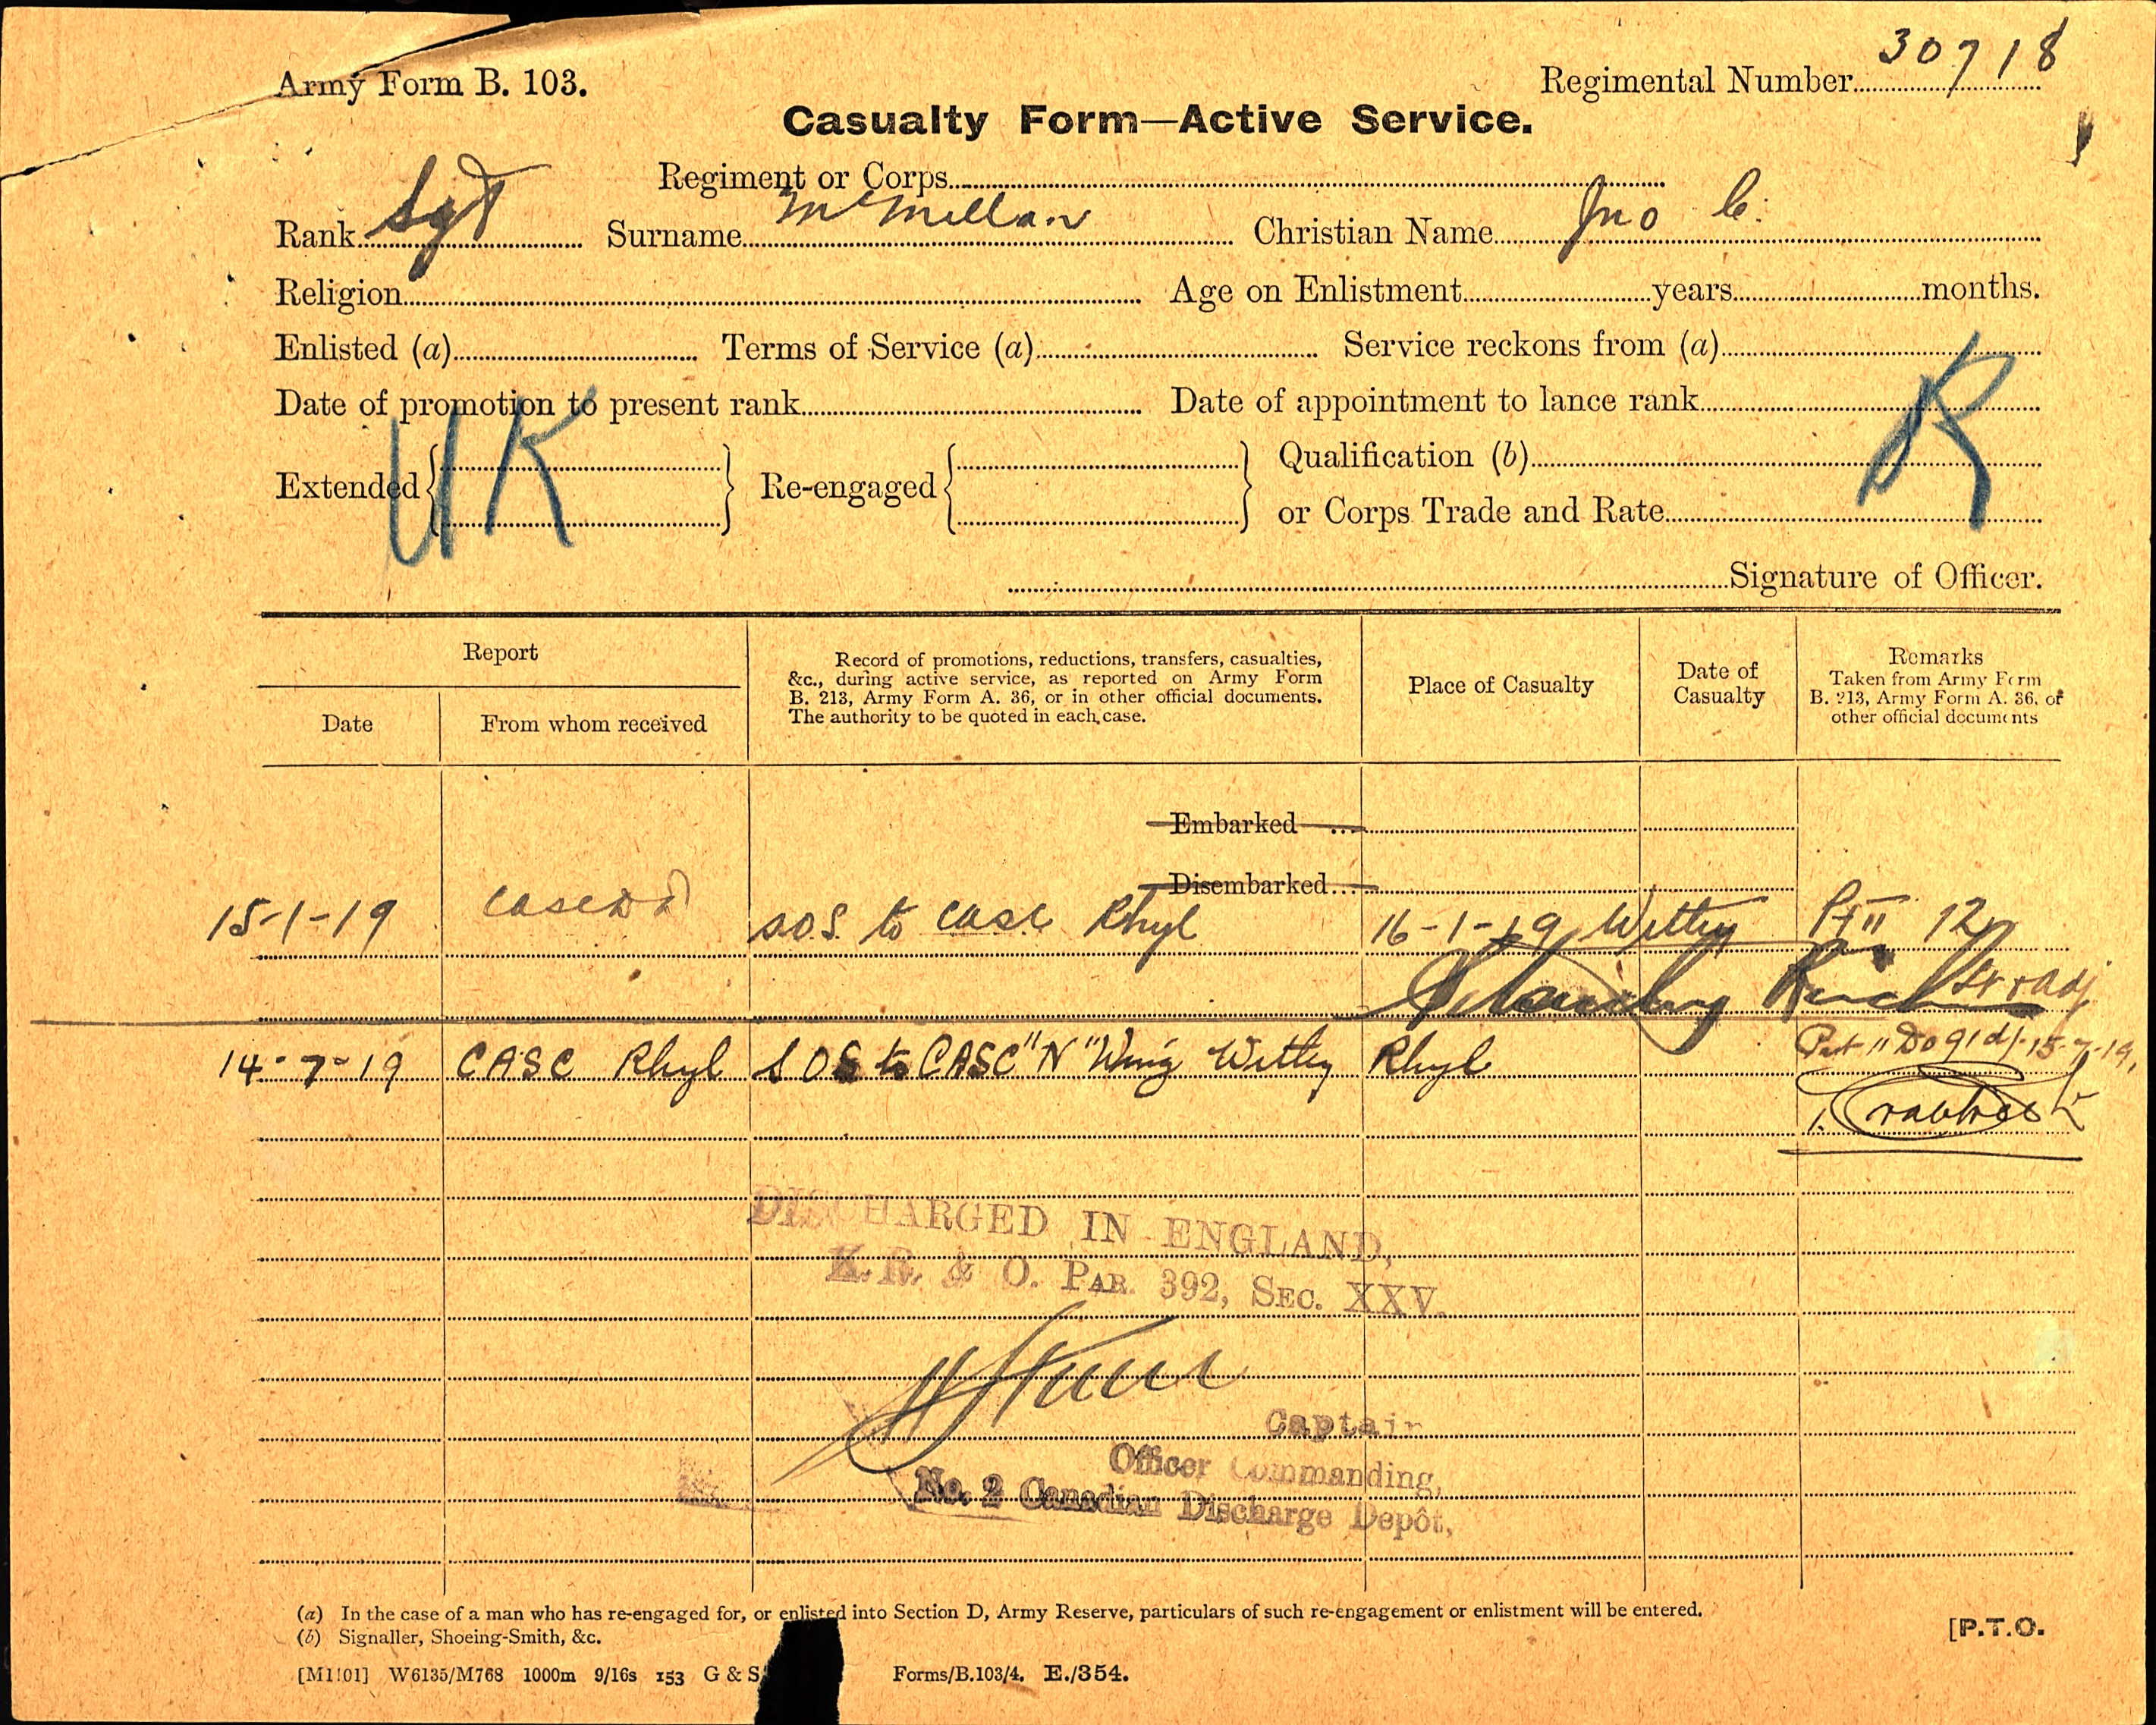 Army Form B. 103.
Regimental Number 30718
Casualty Form—Active Service.
Regiment or Corps
Rank Sgt Surname McMillan Christian Name Jno C.
Religion Age on Enlistment years months.
Enlisted (a) Terms of Service (a) Service reckons from (a)
Date of promotion to present rank Date of appointment to lance rank
UK R
Extended Re-engaged Qualification (b)
or Corps Trade and Rate
Signature of Officer.
Report
Date
From whom received
Record of promotions, reductions, transfers, casualties,
&c., during active service, as reported on Army Form
B. 213, Army Form A. 36, or in other official documents.
The authority to be quoted in each case.
Place of Casualty
Date of
Casualty
Remarks
Taken from Army Form
B. 213, Army Form A. 36, or
other official documents
Embarked ...
Disembarked...
15-1-19 S.O.S. to CASC Rhyl 16-1-19 Witley Pt II 12
Lt & Adj
14-7-19 CASC Rhyl S O S to CASC "N" Wing Witley Rhyl Part II DO 91 d/- 15-7-19.
DISCHARGED IN ENGLAND,
K.R. & O. PAR. 392, SEC. XXV.
Captain
Officer Commanding,
No. 2 Canadian Discharge Depôt,
(a) In the case of a man who has re-engaged for, or enlisted into Section D, Army Reserve, particulars of such re-engagement or enlistment will be entered.
(b) Signaller, Shoeing-Smith, &c.
[P.T.O.
[M1101] W6135/M768 1000m 9/16s 153 G & S Forms/B.103/4. E./354.